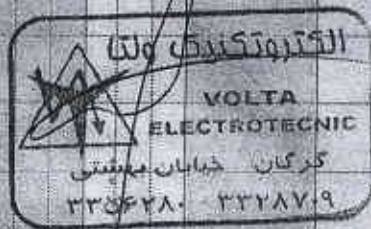 الکتروتکنیک ولتا
VOLTA
ELECTROTECNIC
گرگان خیابان بهشتی
۳۳۵۶۲۸۰ ۳۲۲۸۷۰۹